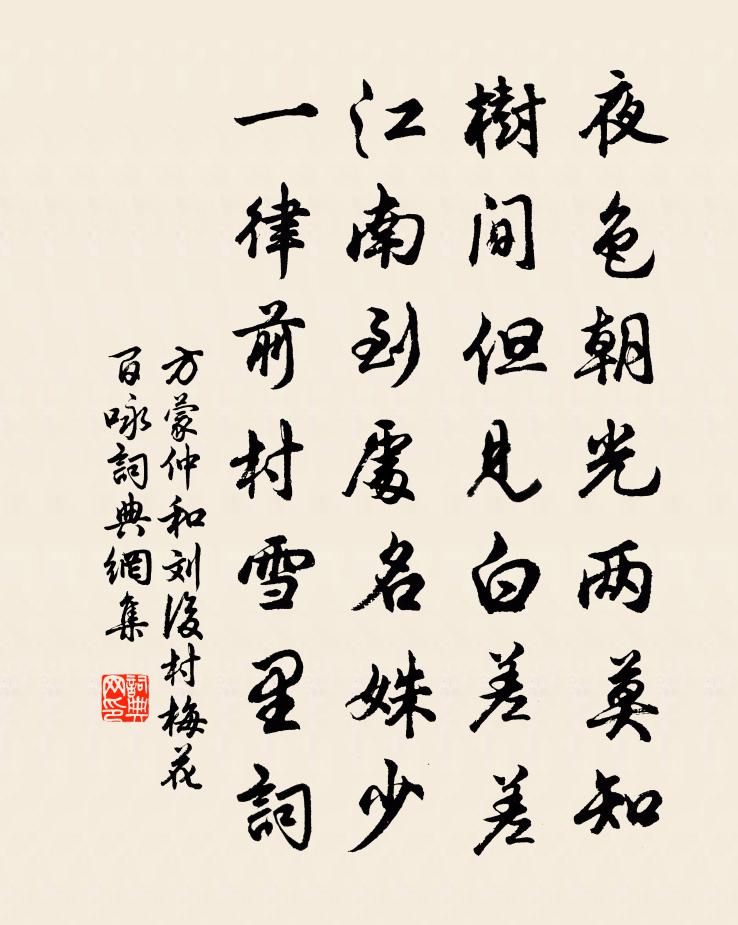 夜色朝光两莫知
樹間但見白差差
江南到處名姝少
一律前村雪里詞
方蒙仲和刘後村梅花
百咏詞典網集
詞典网印